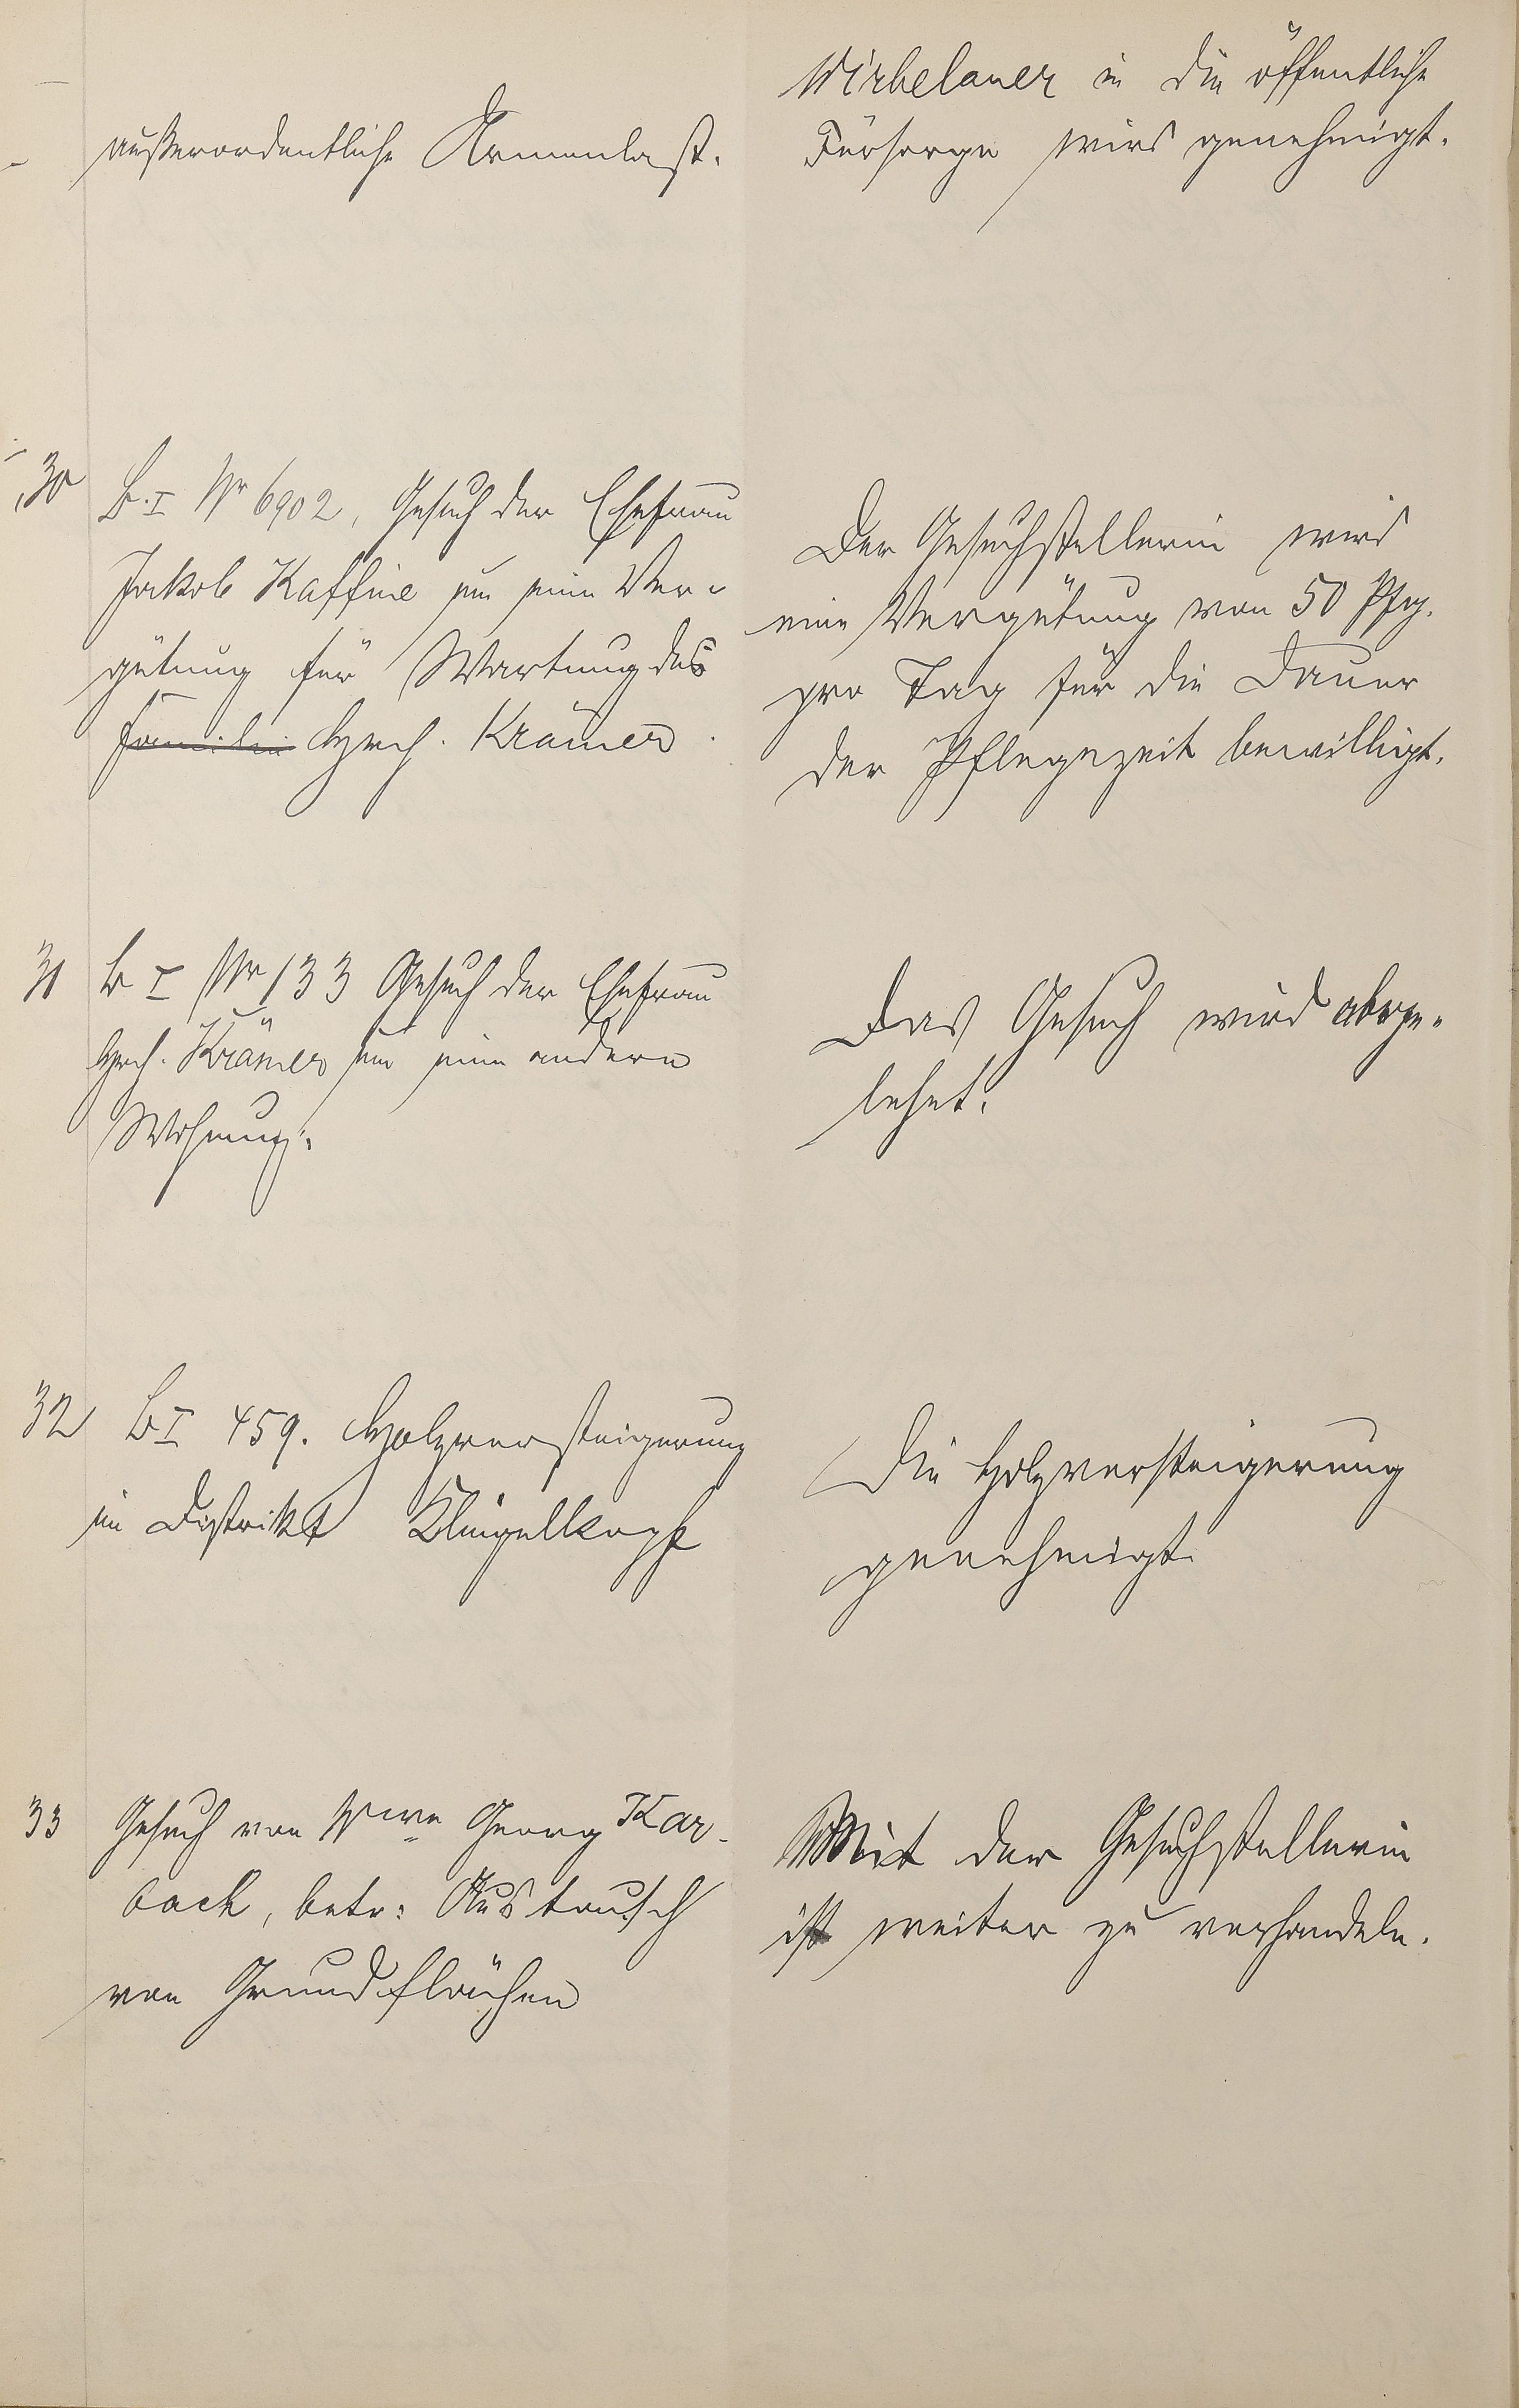 außerordentliche Armenlast.
Wirbelauer in die öffentliche
Fürsorge wird genehmigt.
30 B. I Nr 6902, Gesuch der Ehefrau
Jakob Kaffine um eine Ver-
gütung für Wartung des
Familie Hrch. Krämer.
Der Gesuchstellerin wird
eine Vergütung von 50 Pfg.
pro Tag für die Dauer
der Pflegezeit bewilligt.
31 B I Nr 133 Gesuch der Ehefrau
Hrch. Krämer um eine andere
Wohnung.
Das Gesuch wird abge-
lehnt.
32 B I 459. Holzversteigerung
im Distrikt Klingelkopf
Die Holzversteigerung
genehmigt.
33 Gesuch von Wwe Georg Kar-
bach, betr: Austausch
von Grundflächen
Mit der Gesuchstellerin
ist weiter zu verhandeln.